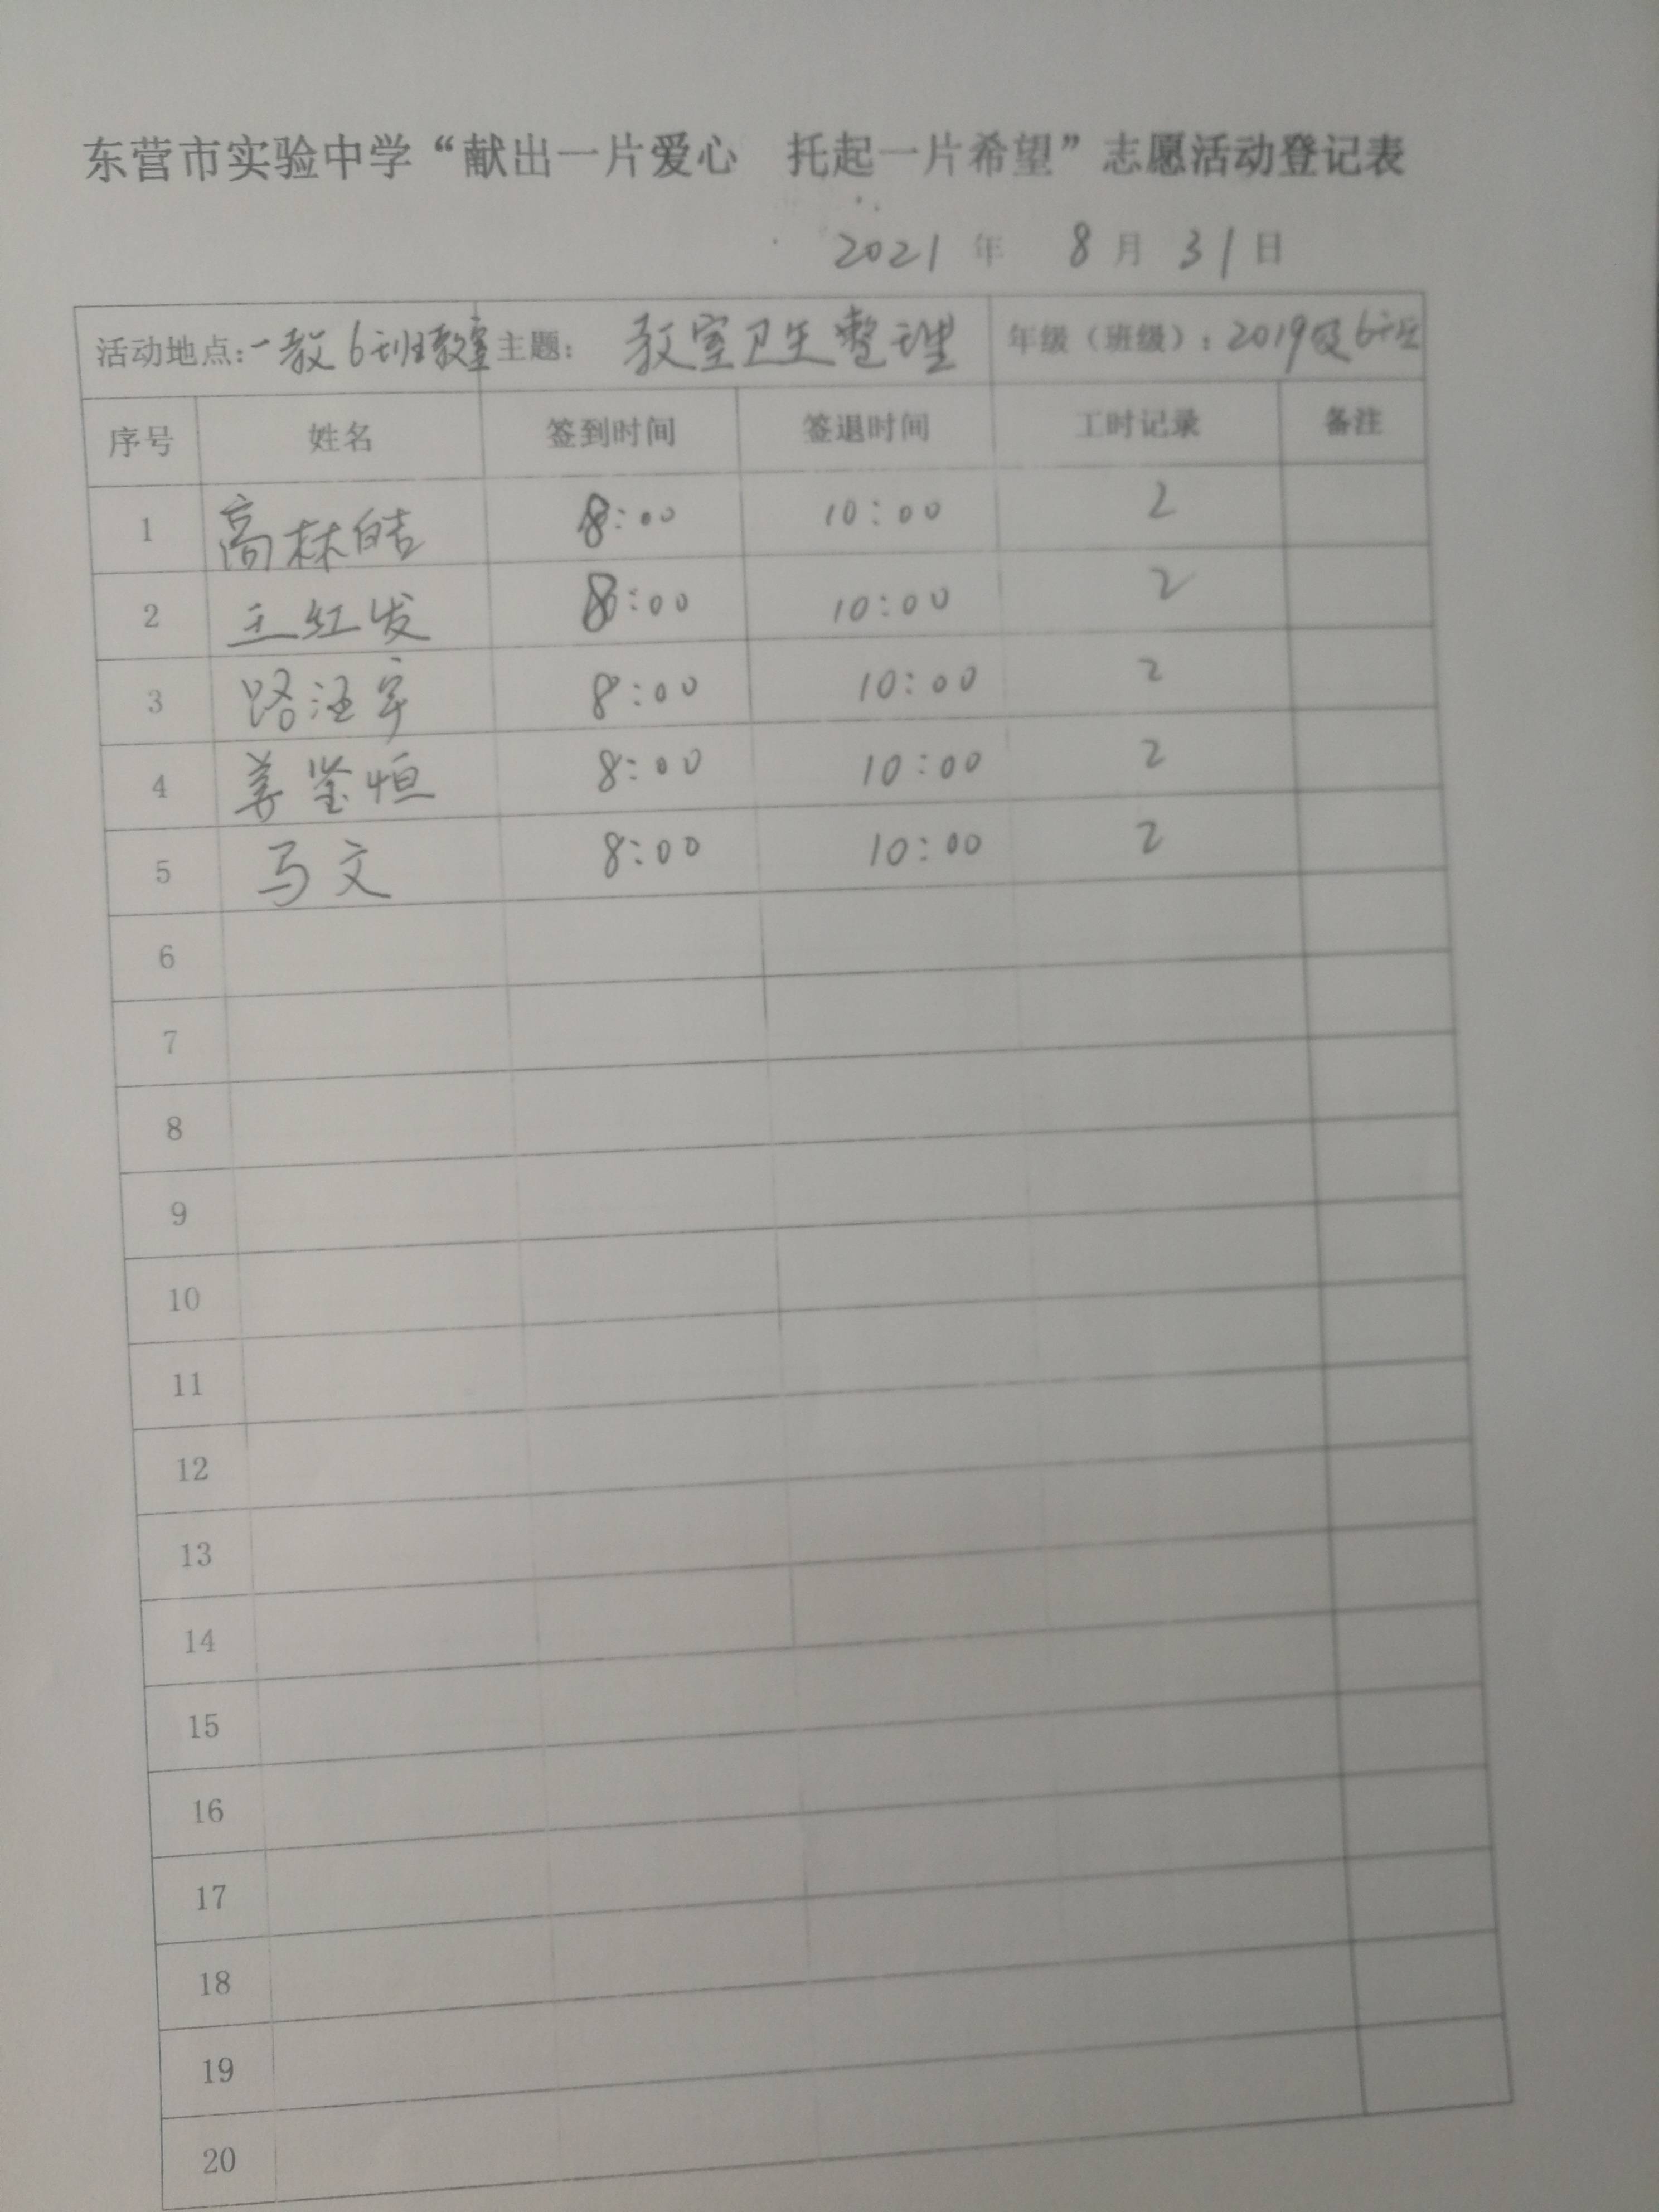 东营市实验中学“献出一片爱心 托起一片希望”志愿活动登记表
2021 年 8 月 31 日
活动地点:一教6班教室 主题: 教室卫生整理 年级（班级）: 2019级6班
序号 姓名 签到时间 签退时间 工时记录 备注
1 高林皓 8:00 10:00 2
2 王红发 8:00 10:00 2
3 路汪宇 8:00 10:00 2
4 姜鉴恒 8:00 10:00 2
5 马文 8:00 10:00 2
6
7
8
9
10
11
12
13
14
15
16
17
18
19
20